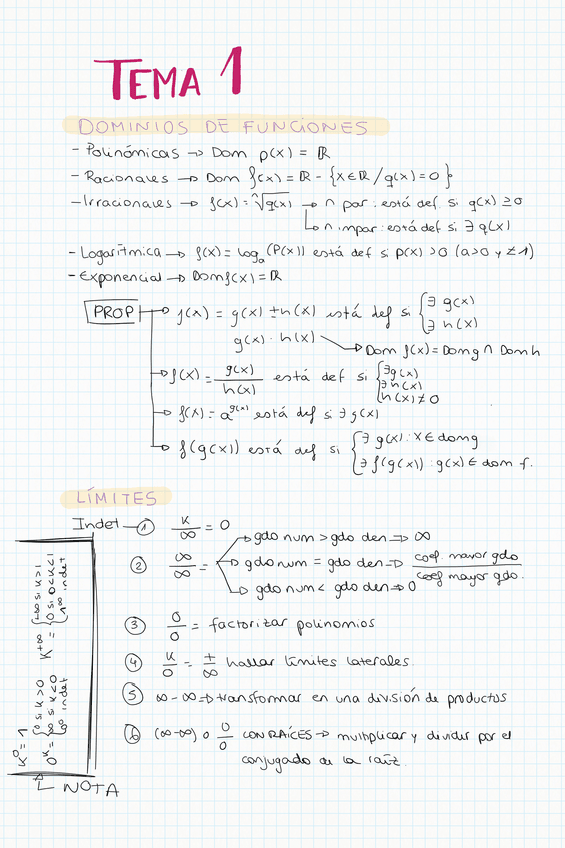 TEMA 1
DOMINIOS DE FUNCIONES
- Polinómicas → Dom p(x) = ℝ
- Racionales → Dom f(x) = ℝ - {x∈ℝ / q(x)=0}
- Irracionales → f(x) = ⁿ√g(x) → n par: está def si g(x) ≥ 0
↳ n impar: está def si ∃ g(x)
- Logarítmica → f(x) = logₐ(P(x)) está def si p(x) > 0 (a>0 y ≠ 1)
- Exponencial → Dom f(x) = ℝ
PROP → f(x) = g(x) ± h(x) está def si { ∃ g(x)
∃ h(x)
g(x) · h(x)
→ Dom f(x) = Dom g ∩ Dom h
→ f(x) = g(x)/h(x) está def si { ∃ g(x)
∃ h(x)
h(x) ≠ 0
→ f(x) = a^g(x) está def si ∃ g(x)
→ f(g(x)) está def si { ∃ g(x) : x ∈ dom g
∃ f(g(x)) : g(x) ∈ dom f.
LÍMITES
Indet → ① K/∞ = 0
② ∞/∞ = → gdo num > gdo den ⇒ ∞
→ gdo num = gdo den ⇒ coef. mayor gdo / coef mayor gdo.
→ gdo num < gdo den ⇒ 0
③ 0/0 = factorizar polinomios
④ K/0 = ±∞ hallar límites laterales
⑤ ∞ - ∞ ⇒ transformar en una división de productos
⑥ (∞-∞) o 0/0 CON RAÍCES → multiplicar y dividir por el
conjugado de la raíz.
K⁰ = 1
0^K = { 0 si K>0
∞ si K<0
0⁰ indet
K^+∞ = { +∞ si K>1
0 si 0<K<1
1^∞ indet
↳ NOTA